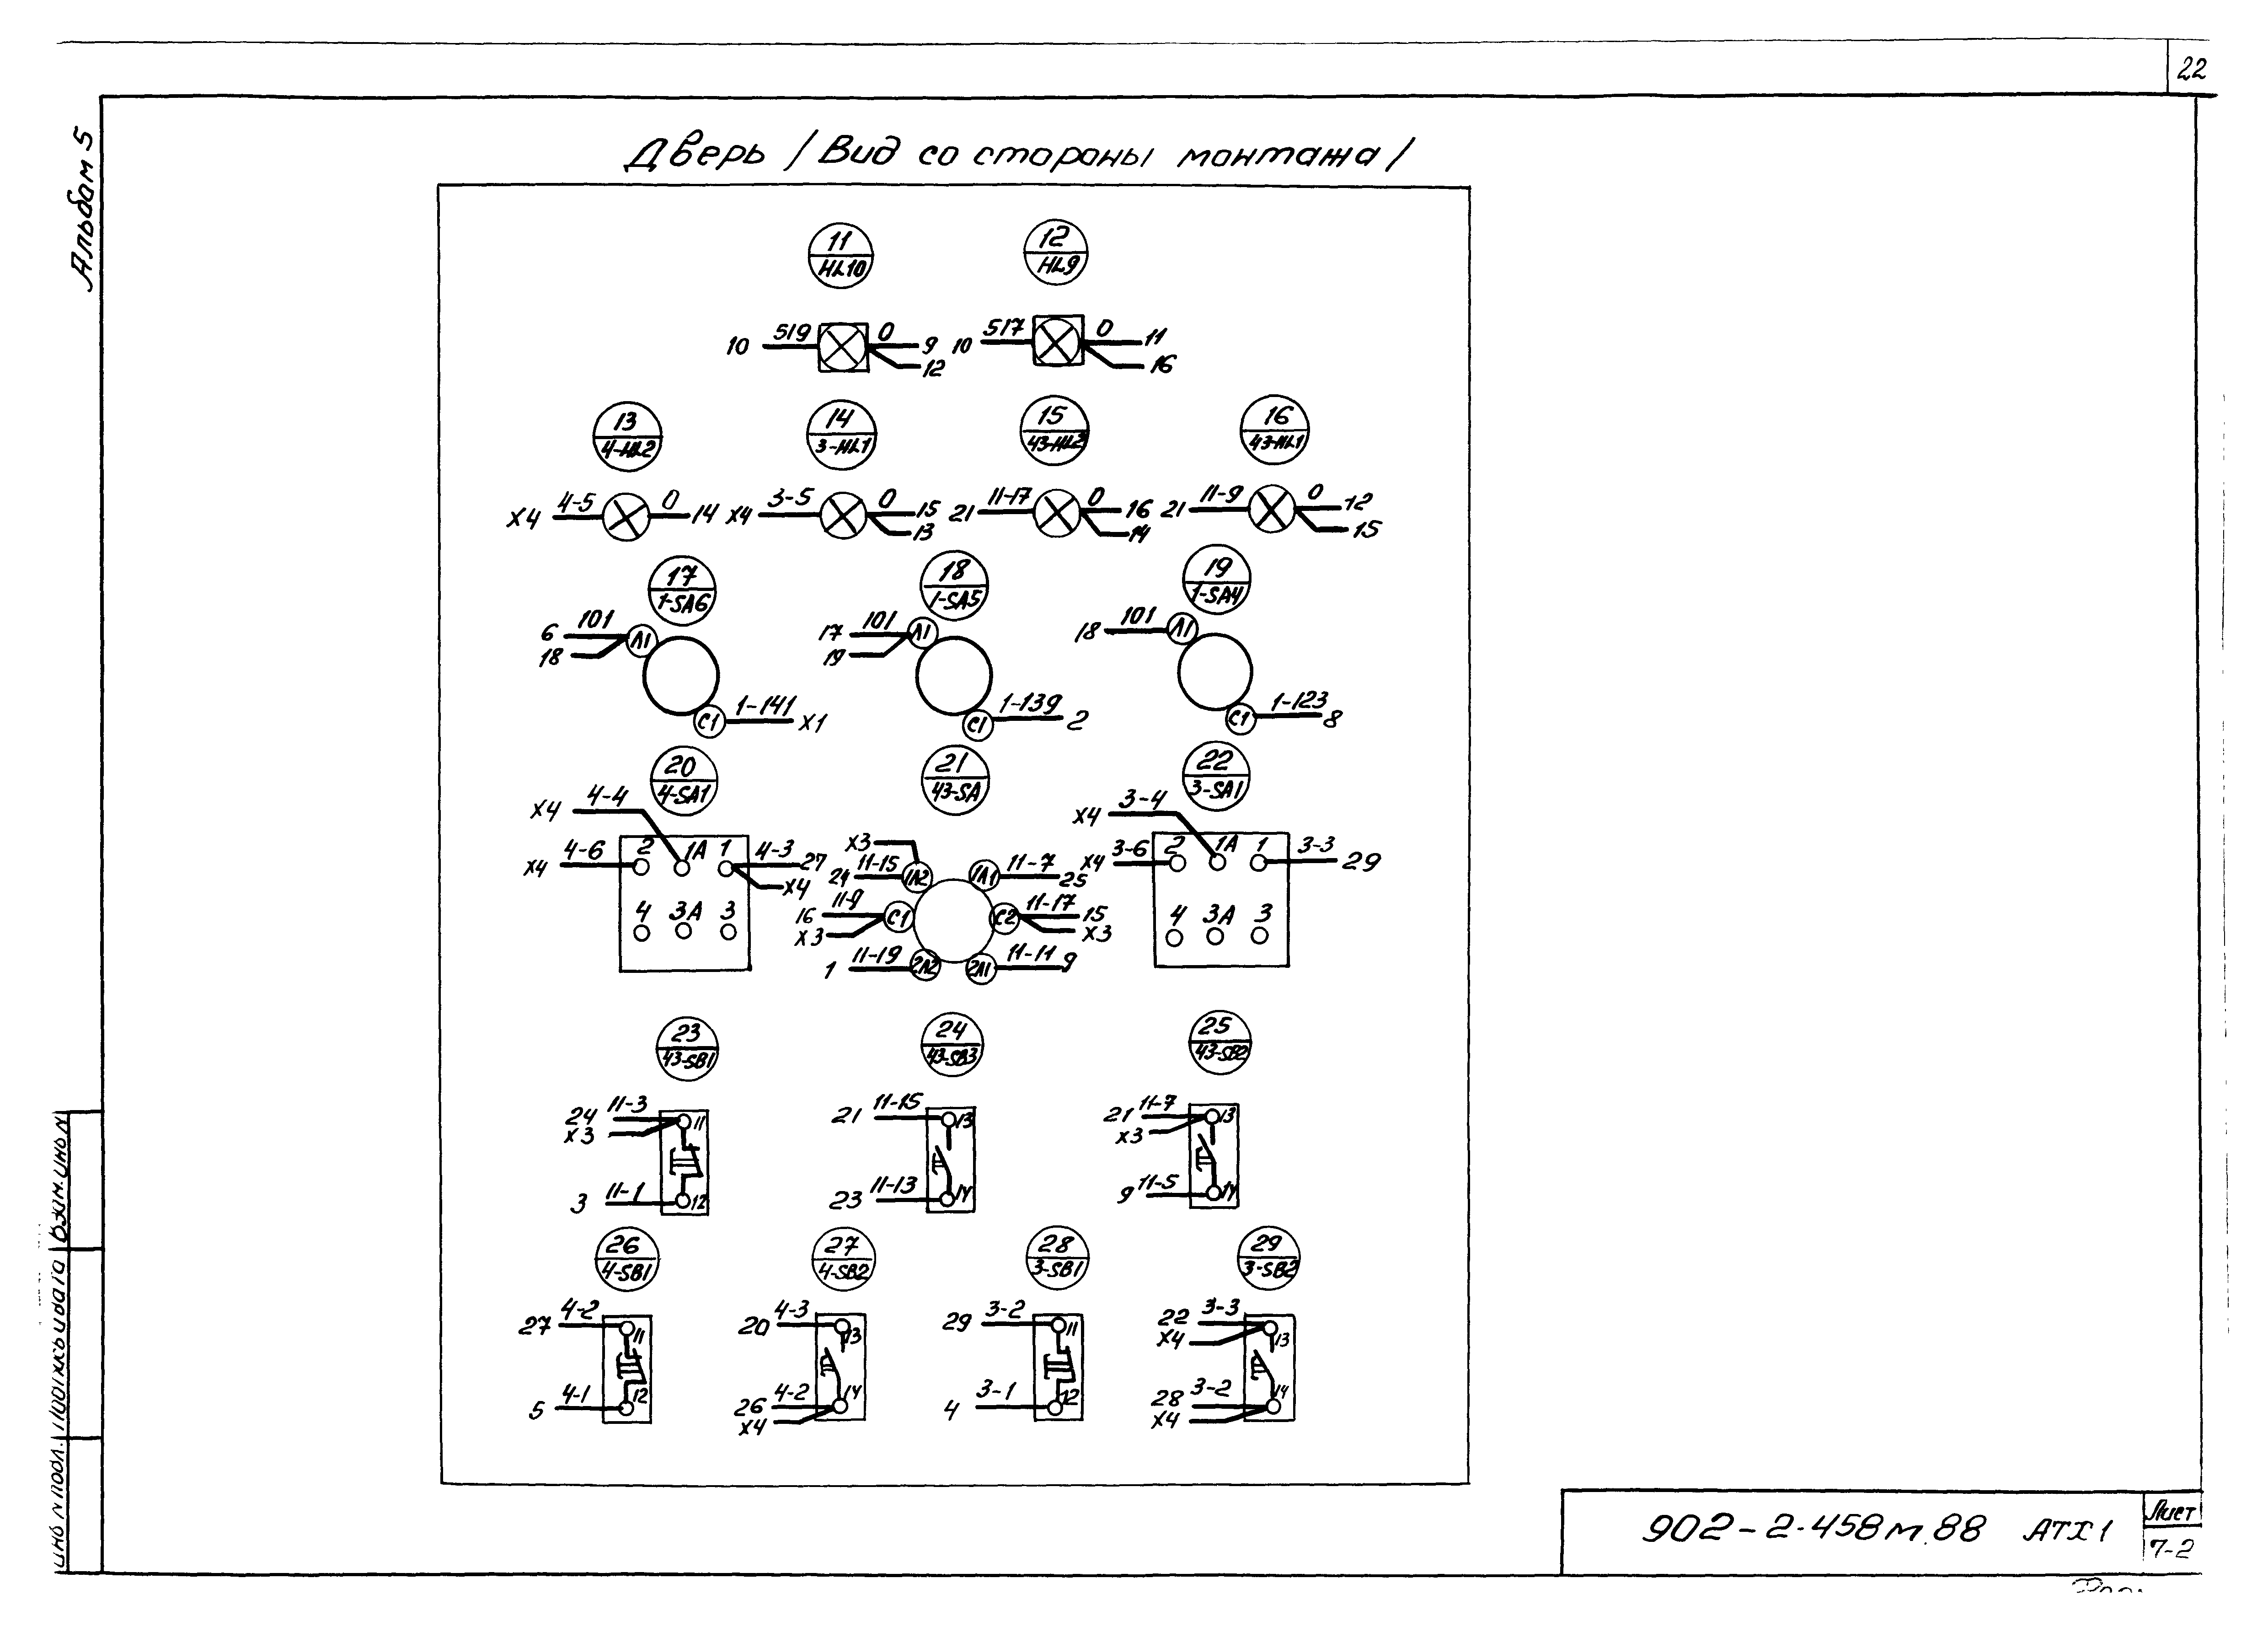 22
Альбом 5
Дверь /Вид со стороны монтажа/
11
HL10
12
HL9
10 519 0 9
12
10 517 0 11
16
13
4-HL2
14
3-HL1
15
43-HL2
16
43-HL1
X4 4-5 0 14
X4 3-5 0 15
13
21 11-17 0 16
14
21 11-9 0 12
15
17
1-SA6
18
1-SA5
19
1-SA4
6 101 Л1
18
C1 1-141 X1
17 101 Л1
19
C1 1-139 2
18 101 Л1
C1 1-123 8
20
4-SA1
21
43-SA
22
3-SA1
X4 4-4
X4 4-6 2 1A 1 4-3 27
X4
4 3A 3
X3
24 11-15 1Л2 1Л1 11-7 25
16 11-9 C1 C2 11-17 15
X3 X3
1 11-19 2Л2 2Л1 11-11 9
X4 3-4
X4 3-6 2 1A 1 3-3 29
4 3A 3
23
43-SB1
24
43-SB3
25
43-SB2
24 11-3 11
X3
3 11-1 12
21 11-15 13
23 11-13 14
21 11-7 13
X3
9 11-5 14
26
4-SB1
27
4-SB2
28
3-SB1
29
3-SB2
27 4-2 11
5 4-1 12
20 4-3 13
26 4-2 14
X4
29 3-2 11
4 3-1 12
22 3-3 13
X4
28 3-2 14
X4
902-2-458м.88 АТХ1
Лист
7-2